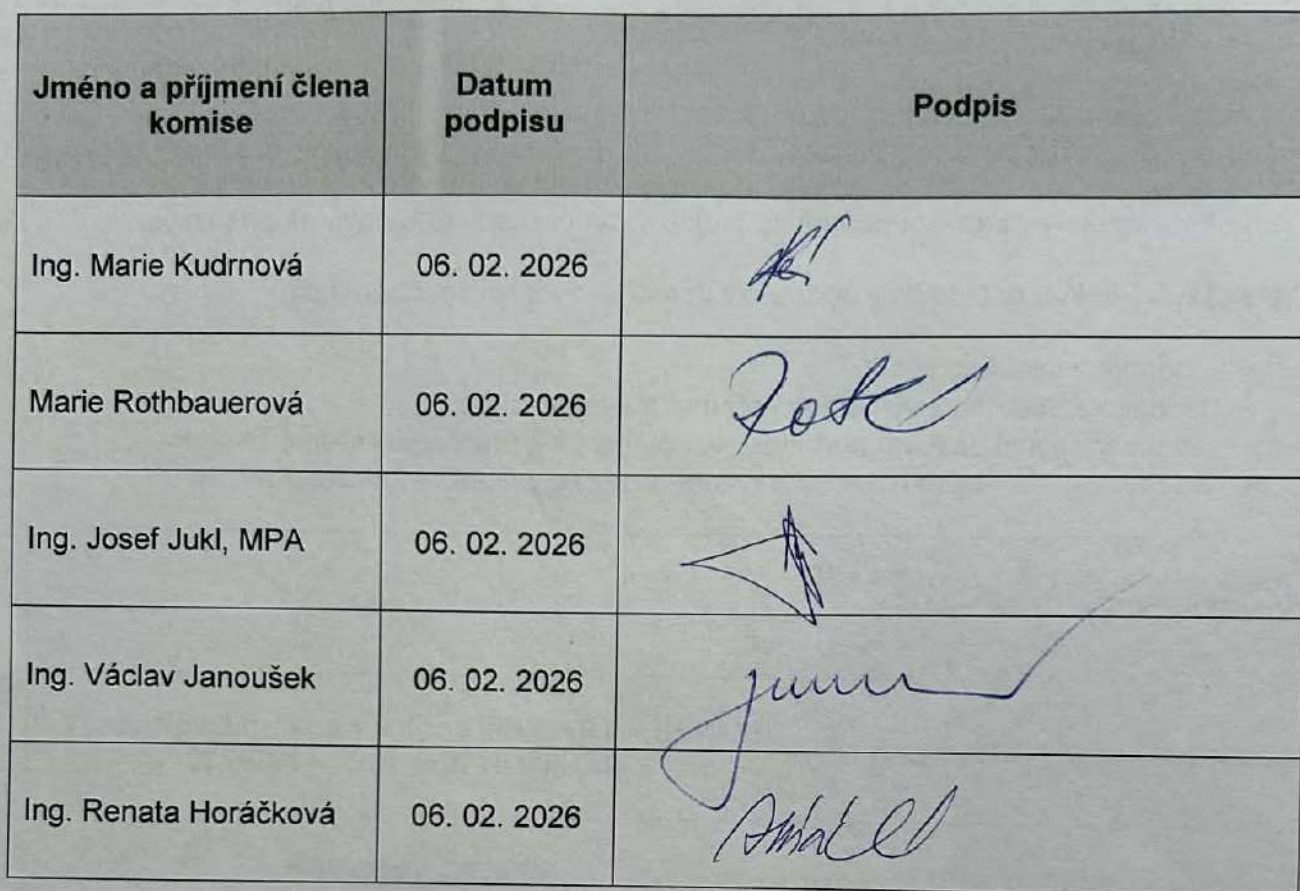 Jméno a příjmení člena
komise
Datum
podpisu
Podpis
Ing. Marie Kudrnová
06. 02. 2026
Marie Rothbauerová
06. 02. 2026
Ing. Josef Jukl, MPA
06. 02. 2026
Ing. Václav Janoušek
06. 02. 2026
Ing. Renata Horáčková
06. 02. 2026